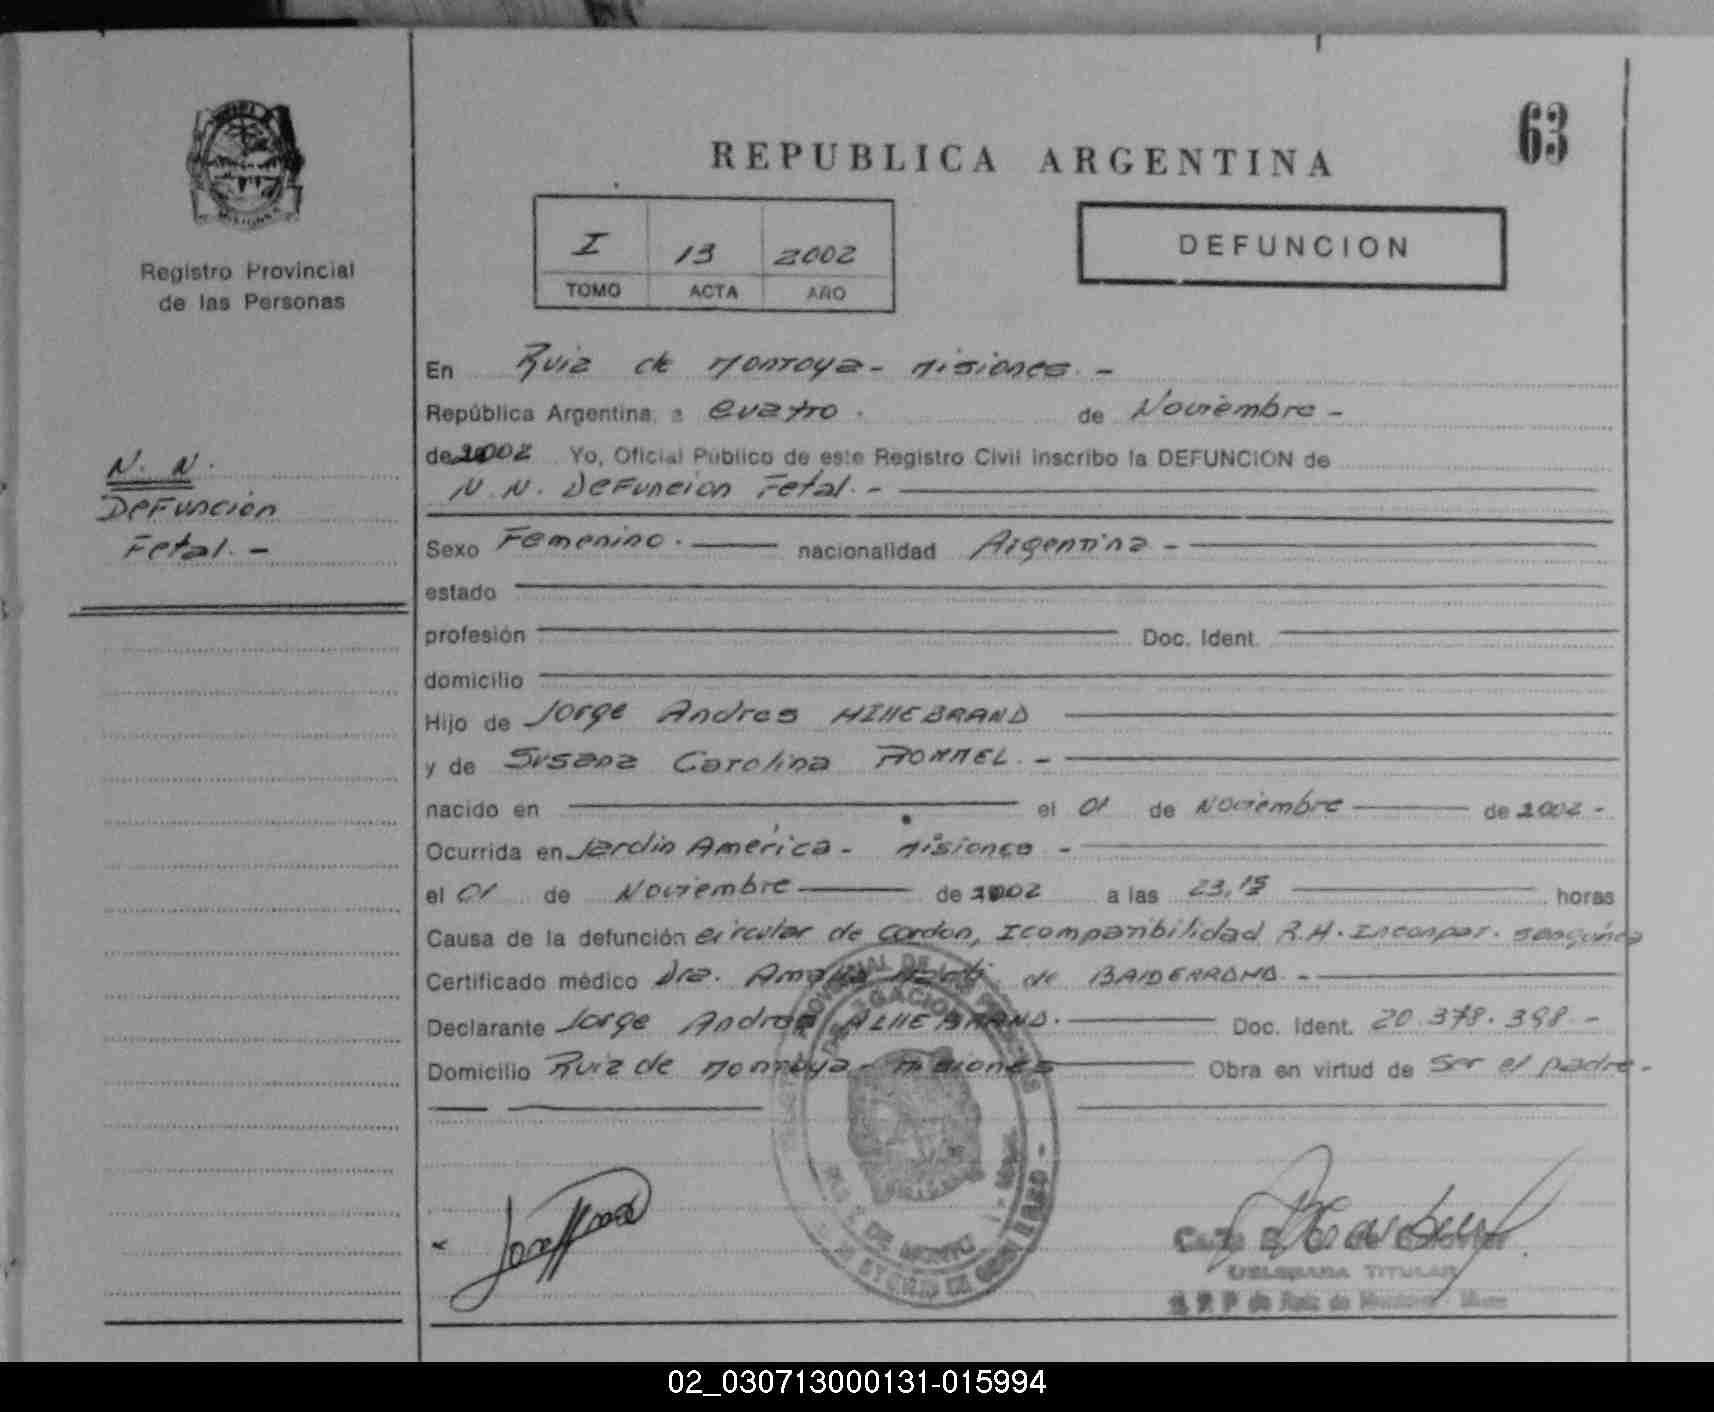 63
REPUBLICA ARGENTINA
I 13 2002
TOMO ACTA AÑO
DEFUNCION
Registro Provincial
de las Personas
N. N.
Defunción
Fetal. -
En Ruiz de Montoya - Misiones. -
República Argentina, a cuatro. de Noviembre -
de 2002 Yo, Oficial Público de este Registro Civil inscribo la DEFUNCION de
N. N. Defuncion Fetal. -
Sexo Femenino. nacionalidad Argentina -
estado
profesión Doc. Ident.
domicilio
Hijo de Jorge Andres HILLEBRAND
y de Susana Carolina ROMMEL. -
nacido en el 01 de Noviembre de 2002 -
Ocurrida en Jardin América - Misiones -
el 01 de Noviembre de 2002 a las 23,15 horas
Causa de la defunción circular de cordon, Icompatibilidad R.H. Incompat. sanguínea
Certificado médico Dra. de BALDERRAMA. -
Declarante Jorge Andres HILLEBRAND. Doc. Ident. 20.378.398. -
Domicilio Ruiz de Montoya - Misiones Obra en virtud de ser el padre. -
DELEGADA TITULAR
02_030713000131-015994